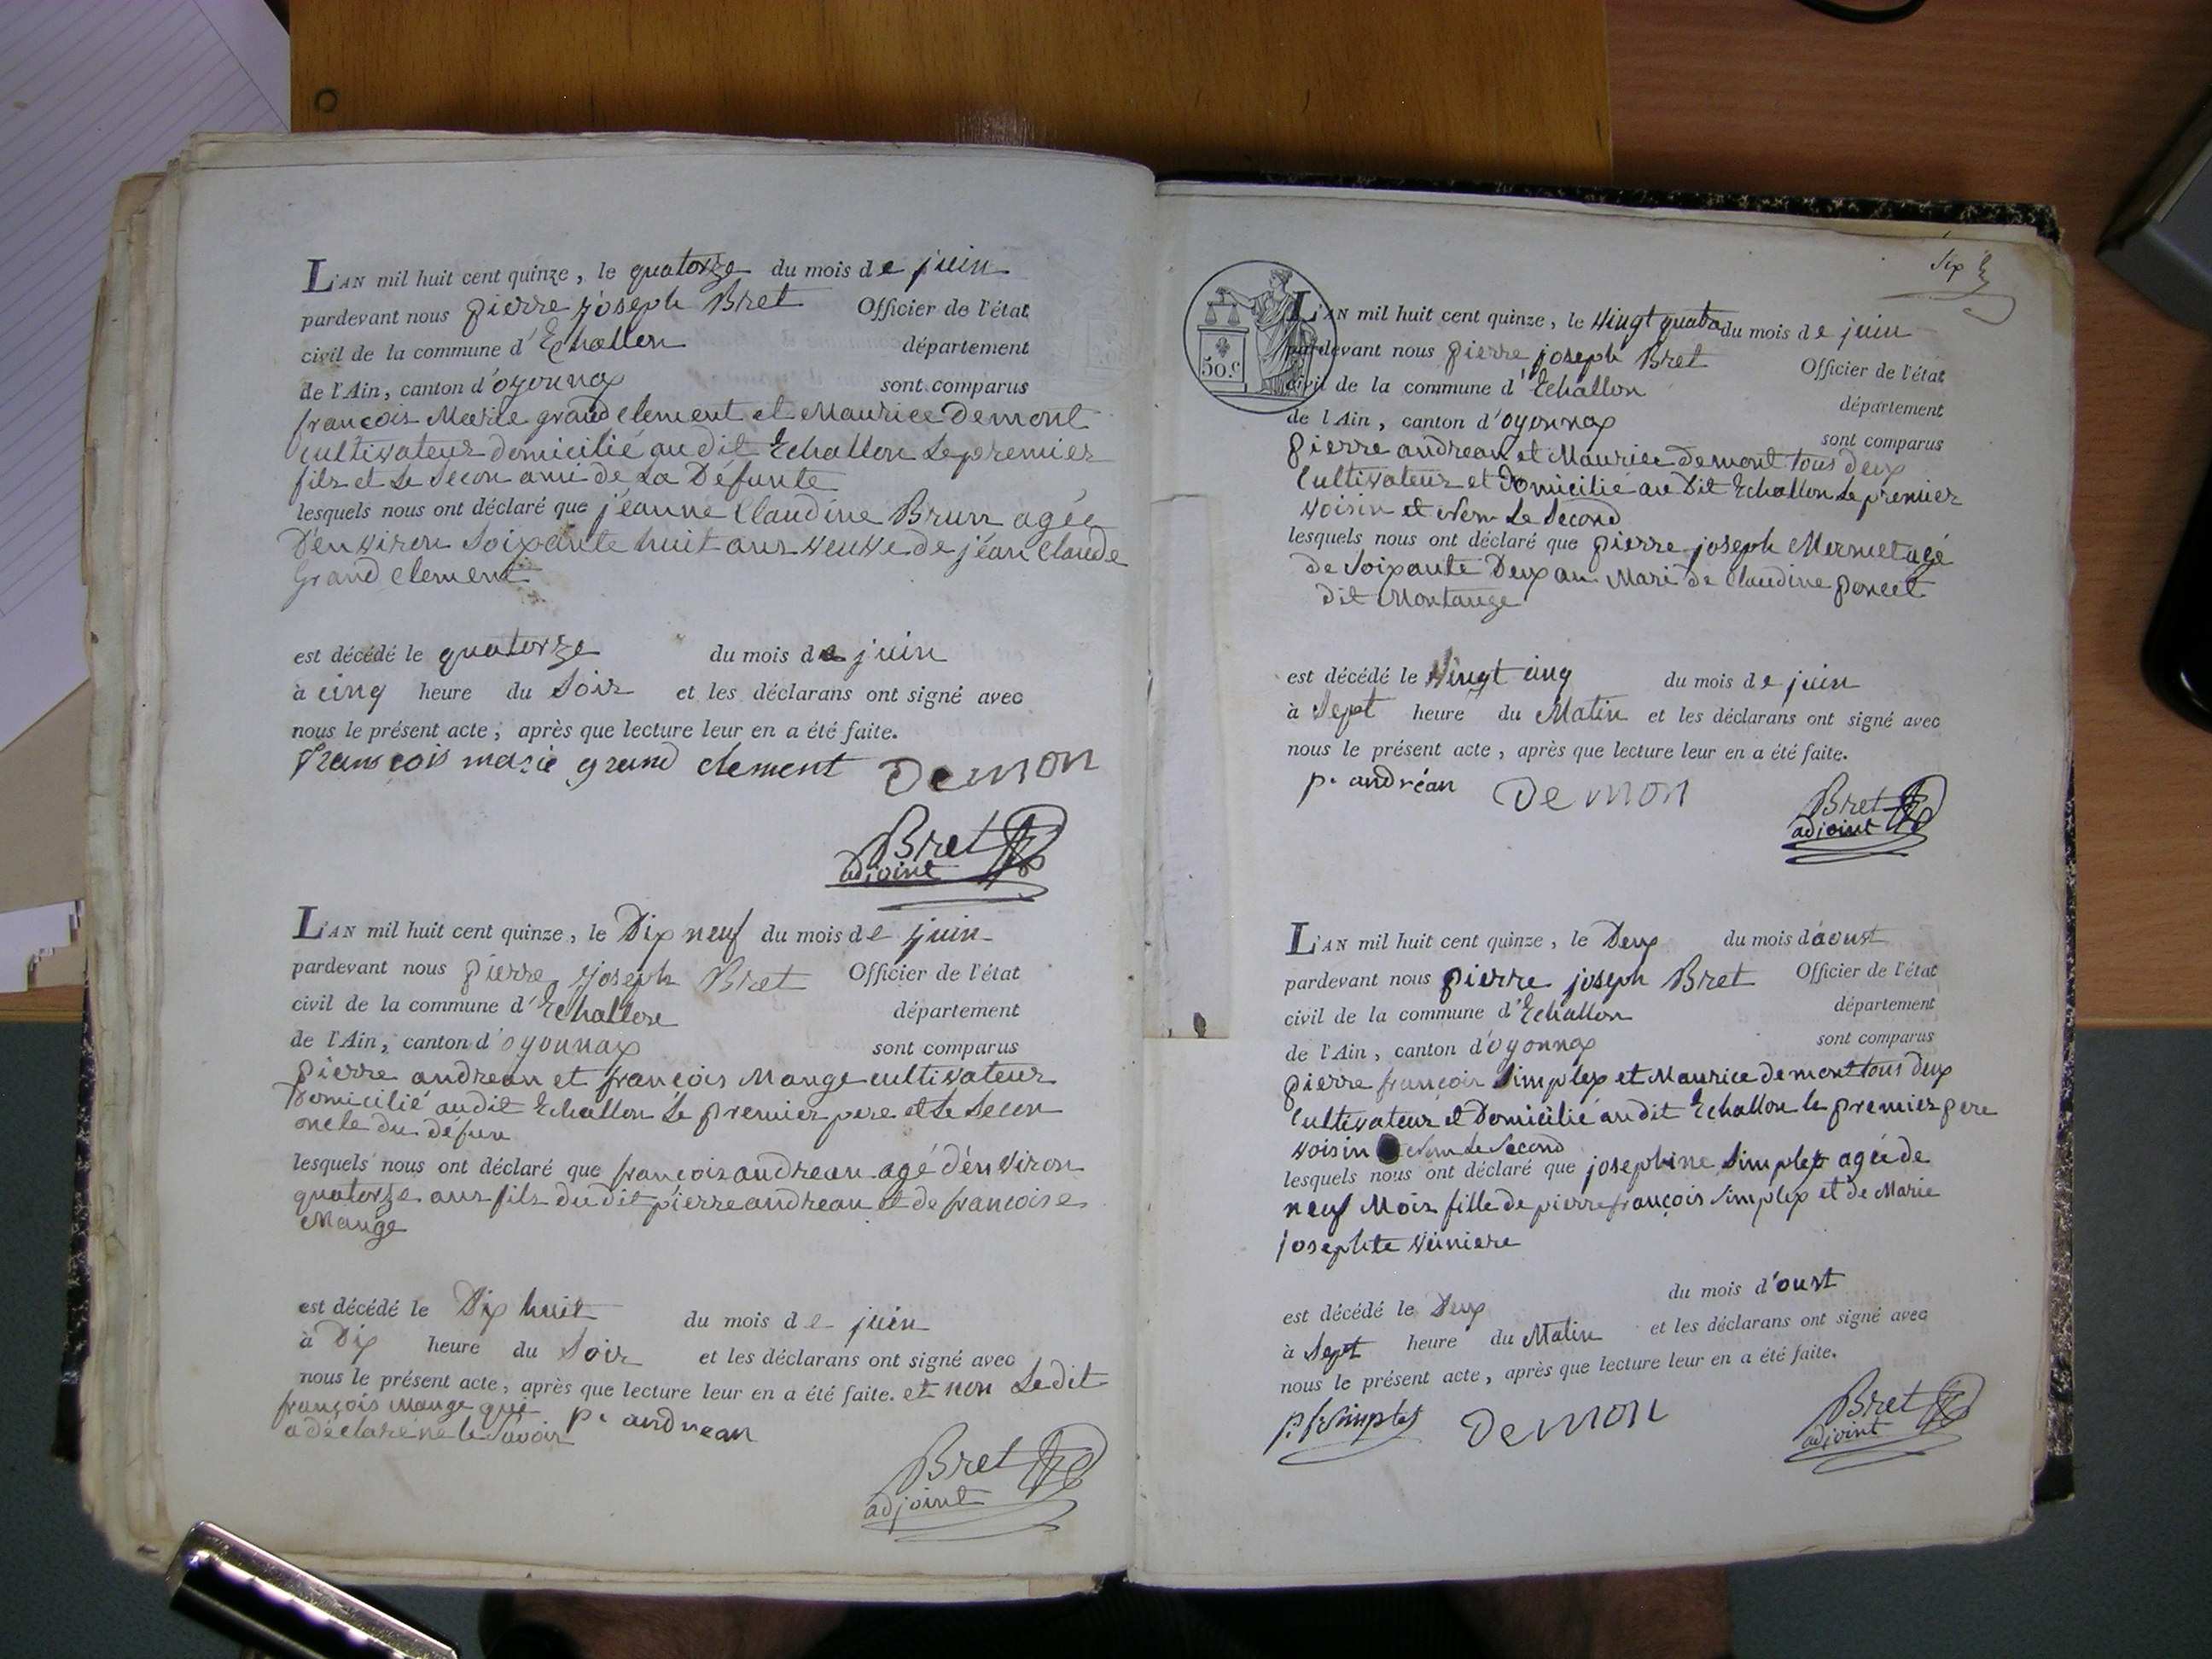 L'AN mil huit cent quinze, le quatorze du mois de juin
pardevant nous pierre joseph Bret Officier de l'état
civil de la commune d'Echallon département
de l'Ain, canton d'oyonnax sont comparus
françois Marie grand clement et Maurice Demont
Cultivateur domicilié au dit Echallon Le premier
fils et Le Secon ami de La Défunte
lesquels nous ont déclaré que jéanne Claudine Brun agée
D'environ Soixante huit ans veuve de jéan Claude
Grand clement
est décédé le quatorze du mois de juin
à cinq heure du Soir et les déclarans ont signé avec
nous le présent acte; après que lecture leur en a été faite.
François marie grand clement Demon
Bret
adjoint
L'AN mil huit cent quinze, le Dix neuf du mois de juin
pardevant nous pierre joseph Bret Officier de l'état
civil de la commune d'Echallon département
de l'Ain, canton d'oyonnax sont comparus
pierre andrean et françois Mange cultivateur
Domicilié audit Echallon Le premier pere et Le Secon
oncle du défun
lesquels nous ont déclaré que françois andrean agé d'environ
quatorze ans fils du dit pierre andrean et de francoise
Mange
est décédé le Dix huit du mois de juin
à Dix heure du Soir et les déclarans ont signé avec
nous le présent acte, après que lecture leur en a été faite. et non Le dit
françois Mange qui
a déclaré ne le Savoir p. andréan
Bret
adjoint
Six
50.c
L'AN mil huit cent quinze, le vingt quatr du mois de juin
pardevant nous pierre joseph Bret Officier de l'état
civil de la commune d'Echallon département
de l'Ain, canton d'oyonnax sont comparus
pierre andrean et Maurice demont tous deux
Cultivateur et Domicilié au Dit Echallon Le premier
voisin et Le Second
lesquels nous ont déclaré que pierre joseph Mermet agé
de Soixante Deux an Mari de Claudine poncet
dit Montange
est décédé le vingt cinq du mois de juin
à Sept heure du Matin et les déclarans ont signé avec
nous le présent acte, après que lecture leur en a été faite.
p. andréan Demon
Bret
adjoint
L'AN mil huit cent quinze, le Deux du mois d'aoust
pardevant nous pierre joseph Bret Officier de l'état
civil de la commune d'Echallon département
de l'Ain, canton d'oyonnax sont comparus
pierre françois Simplex et Maurice demont tous deux
Cultivateur et Domicilié au dit Echallon le premier pere
voisin Le Second
lesquels nous ont déclaré que josephine Simplex agée de
neuf Mois fille de pierre françois Simplex et de Marie
josephte
est décédé le Deux du mois d'oust
à Sept heure du Matin et les déclarans ont signé avec
nous le présent acte, après que lecture leur en a été faite.
p. f. Simplex Demon
Bret
adjoint